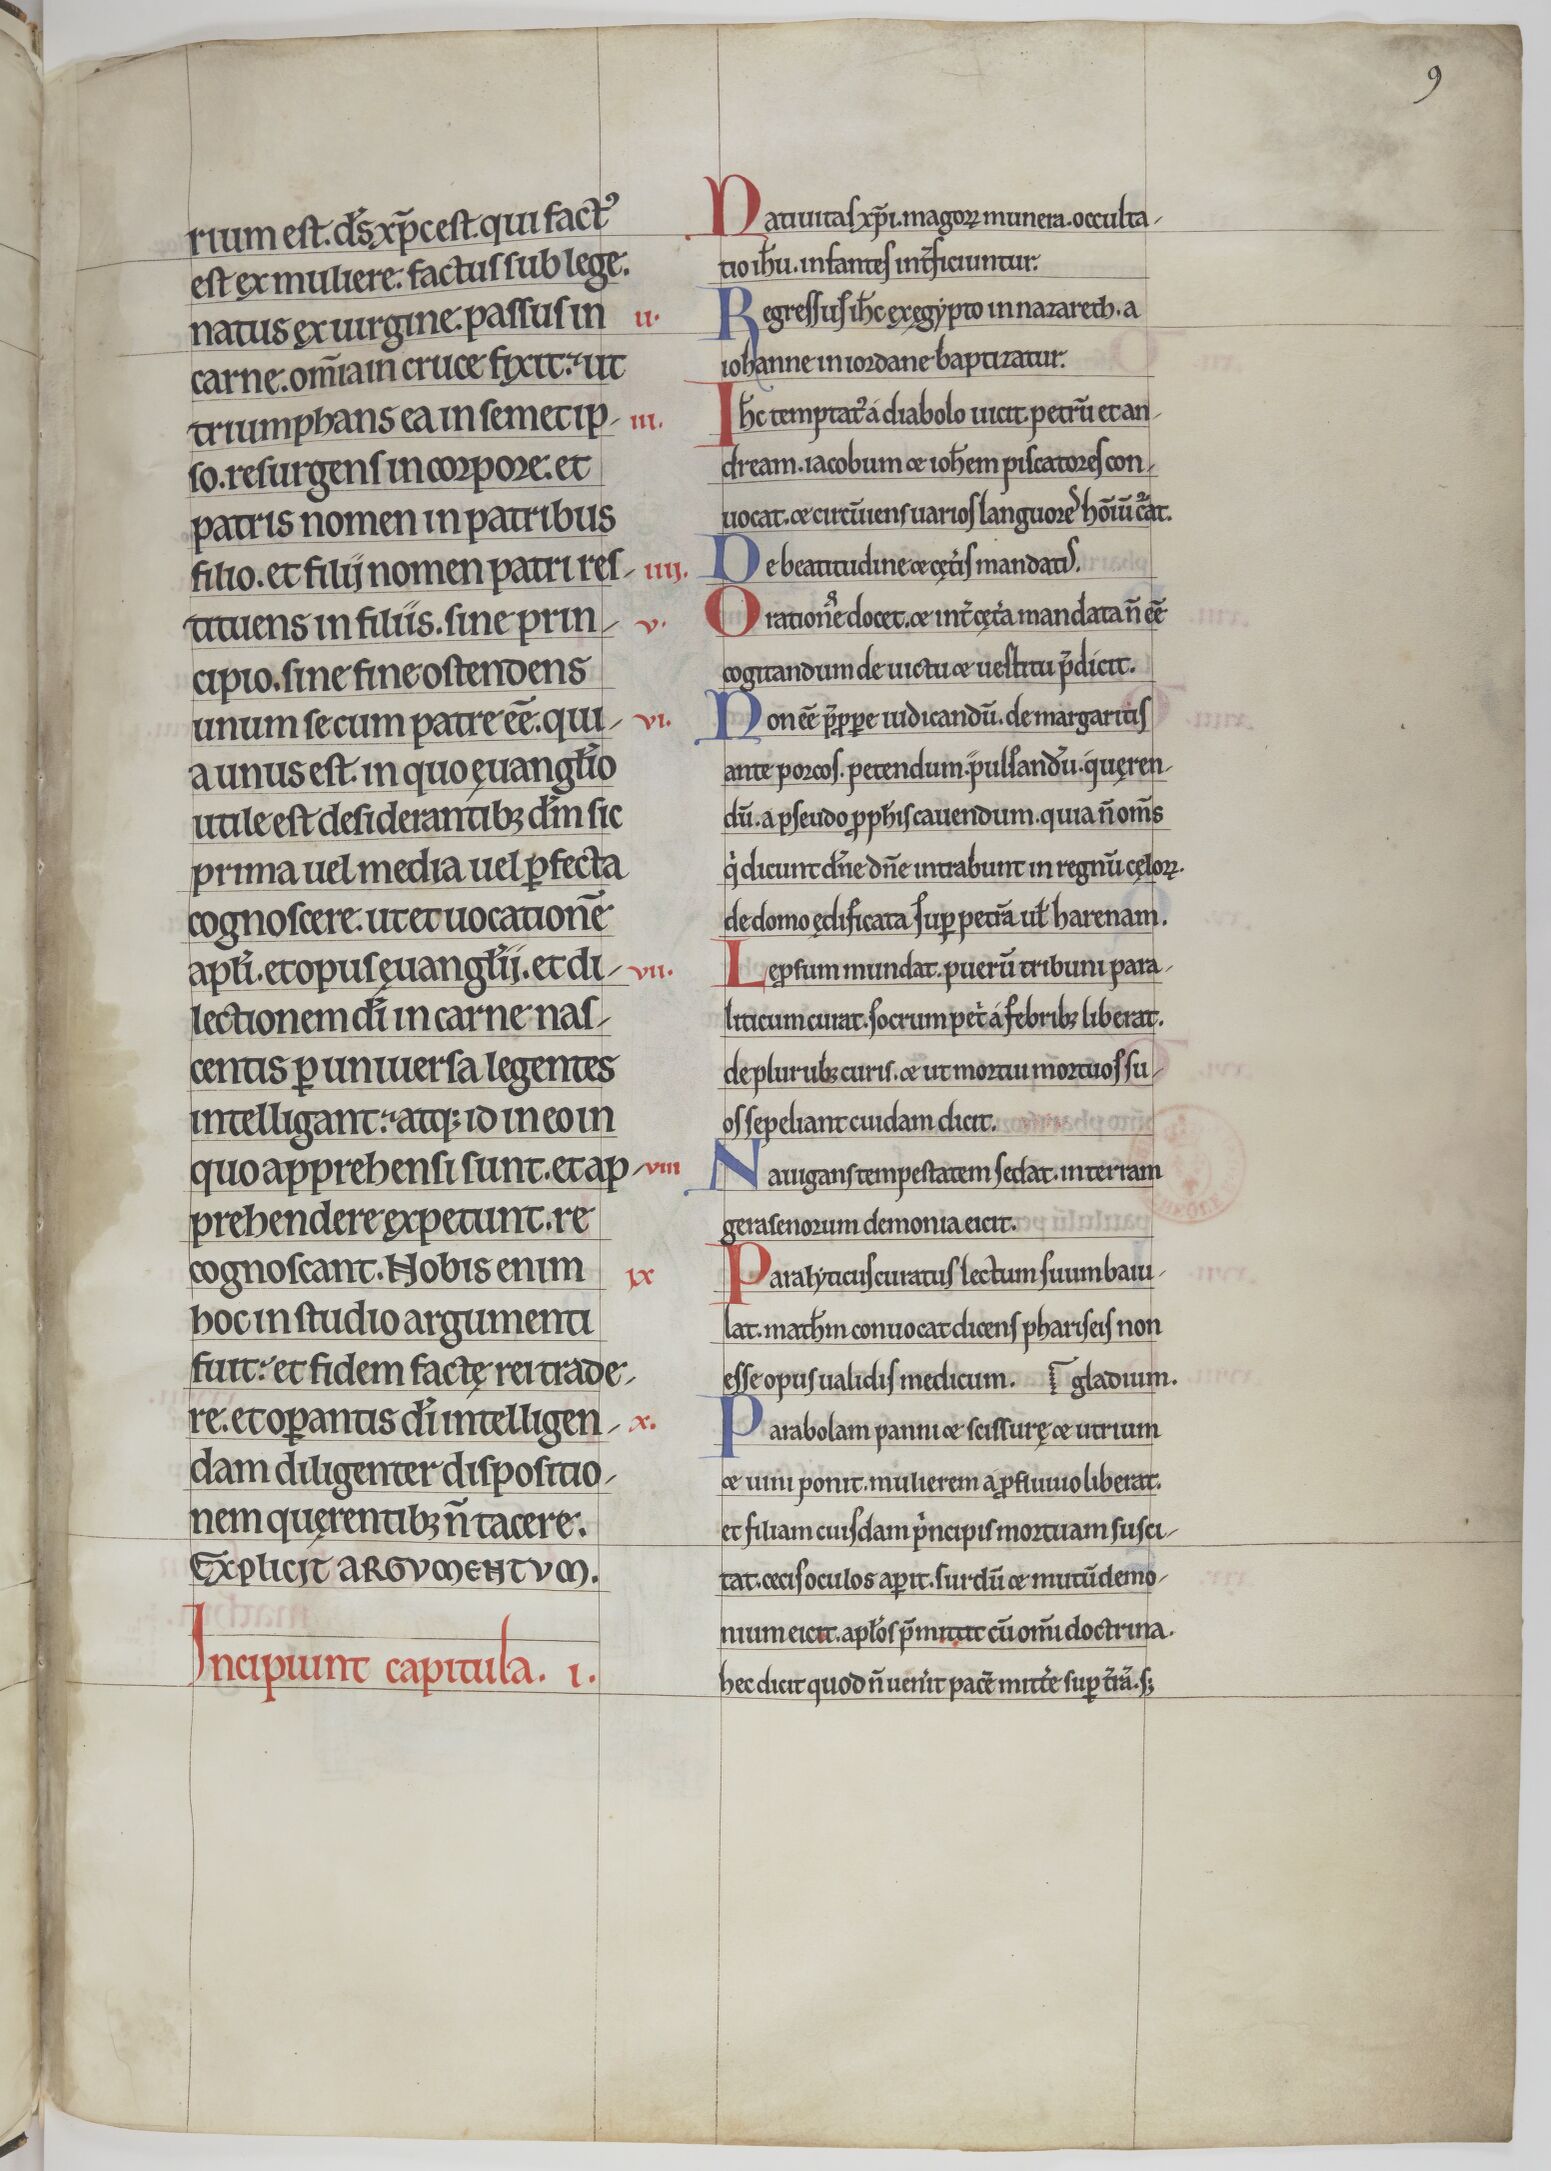 9
rium est. ds̄ xp̄c est. qui fact᾽
est ex muliere. factus sub lege.
natus ex uirgine. passus in
carne. om̄ia in cruce fixit. ut
triumphans ea in semet ip-
so. resurgens in corpore. et
patris nomen in patribus
filio. et filij nomen patri res-
tituens in filiis. sine prin-
cipio. sine fine ostendens
unum se cum patre eē. qui-
a unus est. in quo ęuangl̄io
utile est desiderantibꝫ dm̄ sic
prima uel media uel ꝑfecta
cognoscere. ut et uocationē
apl̄i. et opus ęuangl̄ij. et di-
lectionem dī in carne nas-
centis ꝑ uniuersa legentes
intelligant. atq; id in eo in
quo apprehensi sunt. et ap-
prehendere expetunt. re
cognoscant. Nobis enim
hoc in studio argumenti
fuit. et fidem factę rei trade-
re. et oꝑantis dī intelligen-
dam diligenter dispositio-
nem quęrentibꝫ n̄ tacere.
Explicit ARGVMENTVM.
Incipiunt capitula. i.
Natiuitas xp̄i. magoꝝ munera. occulta-
tio ih̄u. infantes int̄ficiuntur.
ii. Regressus ih̄c ex ęgypto in nazareth. a
iohanne in iordane baptizatur.
iii. Ih̄c temptat᾽ a diabolo uicit. petrū et an-
dream. iacobum & ioh̄em piscatores con-
uocat. & circūiens uarios languores hōiū c̄at.
iiij. De beatitudine & cęt̄is mandatis.
v. Orationē docet. & int̄ cęt̄a mandata n̄ eē
cogitandum de uictu & uestitu p̄dicit.
vi. Non eē p̄pꝓꝑe iudicandū. de margaritis
ante porcos. petendum. pulsandū. quęren-
dū. a pseudo ꝓph̄is cauendum. quia n̄ om̄s
q̇ dicunt dn̄e dn̄e intrabunt in regnū cęloꝝ.
de domo ędificata suꝑ petrā ul̄ harenam.
vii. Leprsum mundat. puerū tribuni para-
liticum curat. socrum pet̄ a febribꝫ liberat.
de pluribꝫ curis. & ut mortui mortuos su-
os sepeliant cuidam dicit.
viii Nauigans tempestatem sedat. in terram
gerasenorum demonia eicit.
ix Paralyticus curatus lectum suum baiu-
lat. math̄m conuocat dicens phariseis non
esse opus ualidis medicum. gladium.
x. Parabolam panni & scissurę & utrium
& uini ponit. mulierem a ꝓfluuio liberat.
et filiam cuiusdam p̄ncipis mortuam susci-
tat. ceci oculos aꝑit. surdū & mutū demo-
nium eicit. apl̄os p̄mittit cū om̄i doctrina.
hec dicit quod n̄ uen̄it pacē mitt̄e suꝑ t̄rā. sꝫ